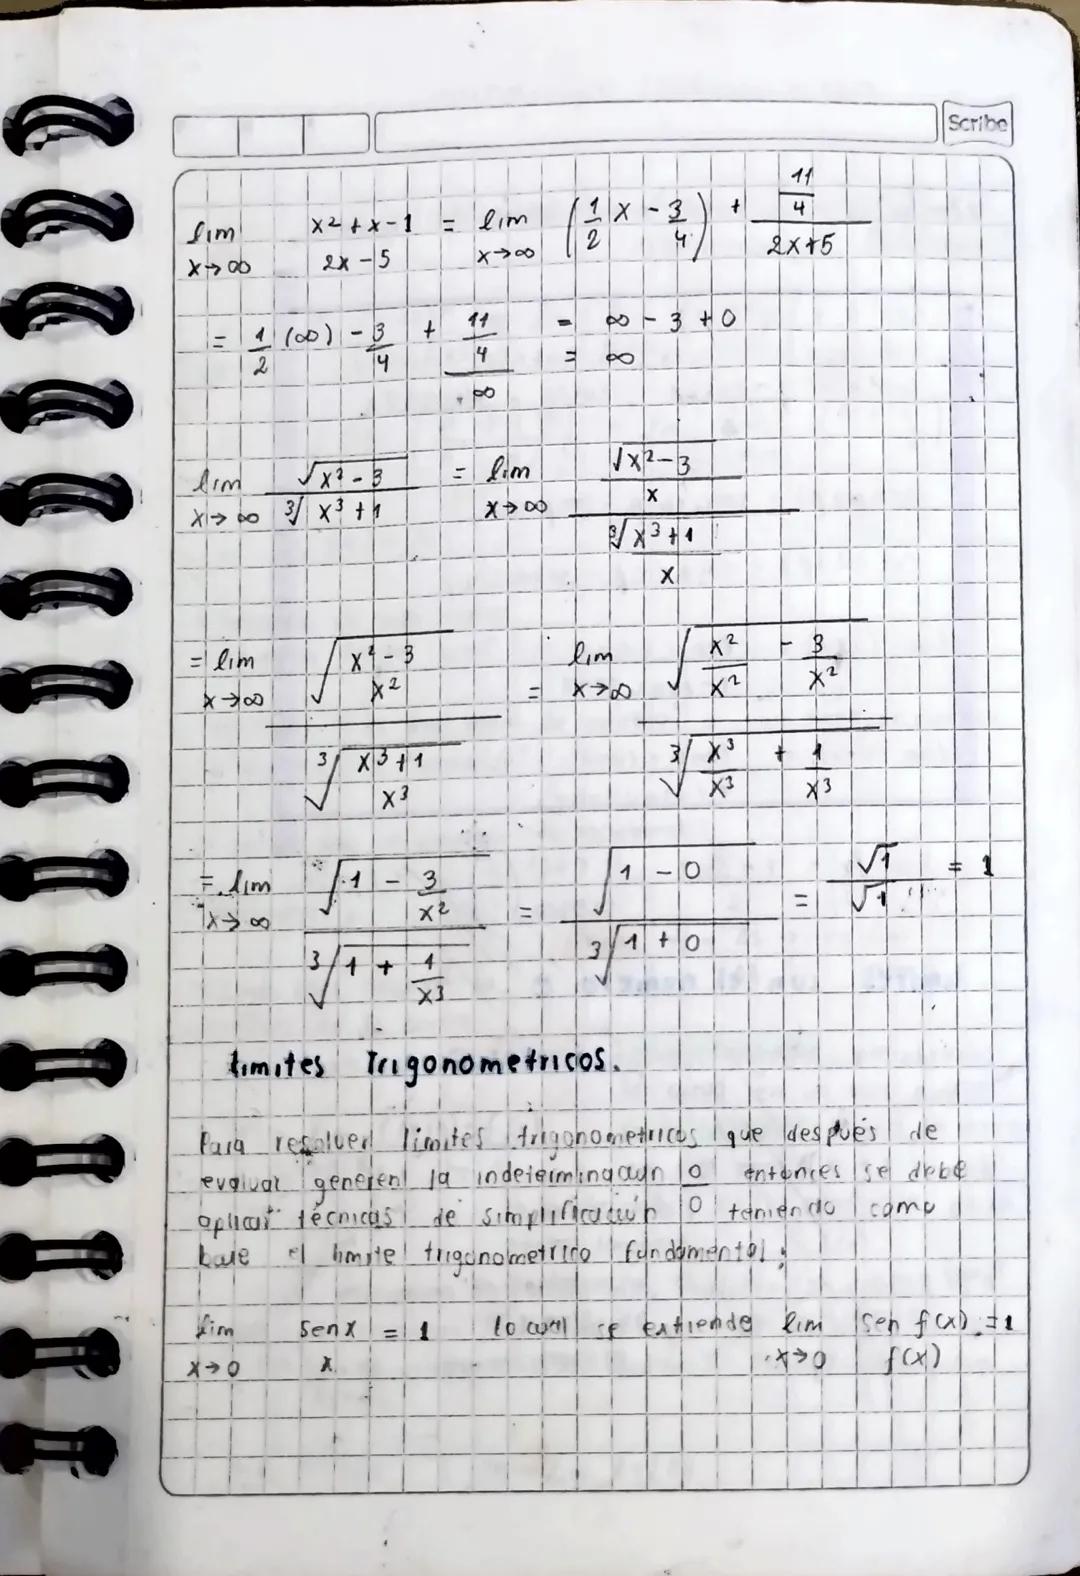 Scribe
lim x→∞ x² + x - 1 / 2x - 5 = lim x→∞ (1/2 x - 3/4) + 11/4 / 2x+5
= 1/2 (∞) - 3/4 + 11/4 / ∞ = ∞ - 3 + 0
= ∞
lim x→∞ √x² - 3 / ³√x³ + 1 = lim x→∞ √x² - 3 / x / ³√x³ + 1 / x
= lim x→∞ √x² - 3 / x² / ³√x³ + 1 / x³ = lim x→∞ √x²/x² - 3/x² / ³√x³/x³ + 1/x³
= lim x→∞ √1 - 3/x² / ³√1 + 1/x³ = √1 - 0 / ³√1 + 0 = √1 / √1 = 1
Limites Trigonometricos.
Para resolver limites trigonometricos que después de
evaluar generen la indeterminación 0/0 entonces se debe
aplicar técnicas de simplificación teniendo como
base el limite trigonometrico fundamental:
lim x→0 sen x / x = 1 lo cual se extiende lim x→0 sen f(x) / f(x) = 1